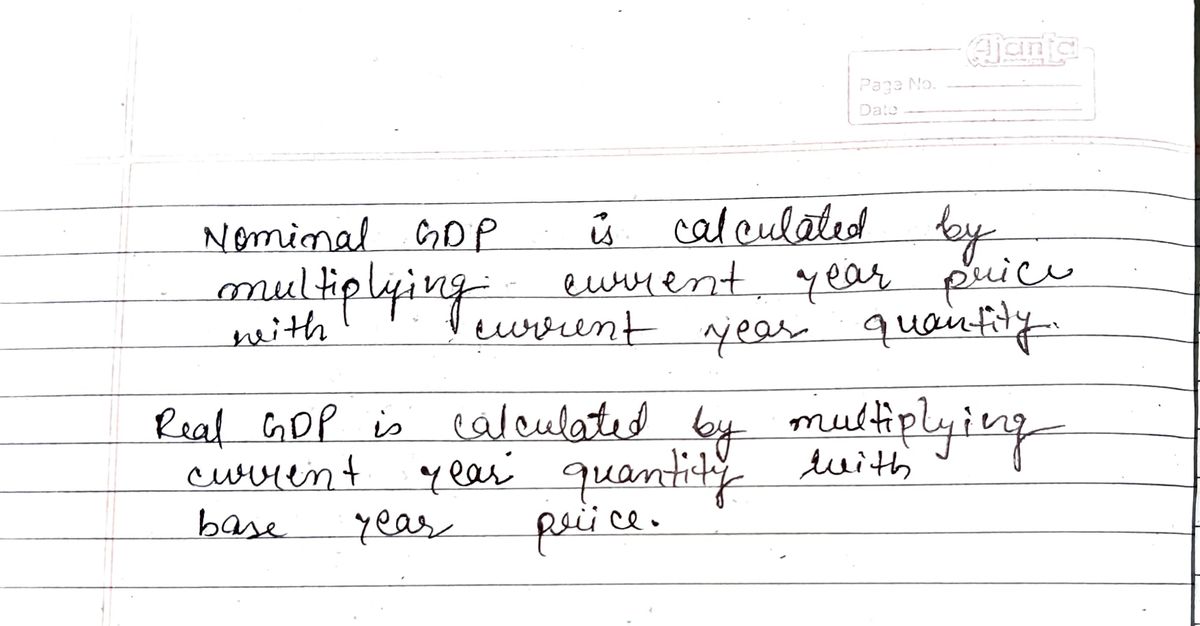 Ajanta
Page No.
Date
Nominal GDP is calculated by
multiplying current year price
with current year quantity.
Real GDP is calculated by multiplying
current year quantity with
base year price.